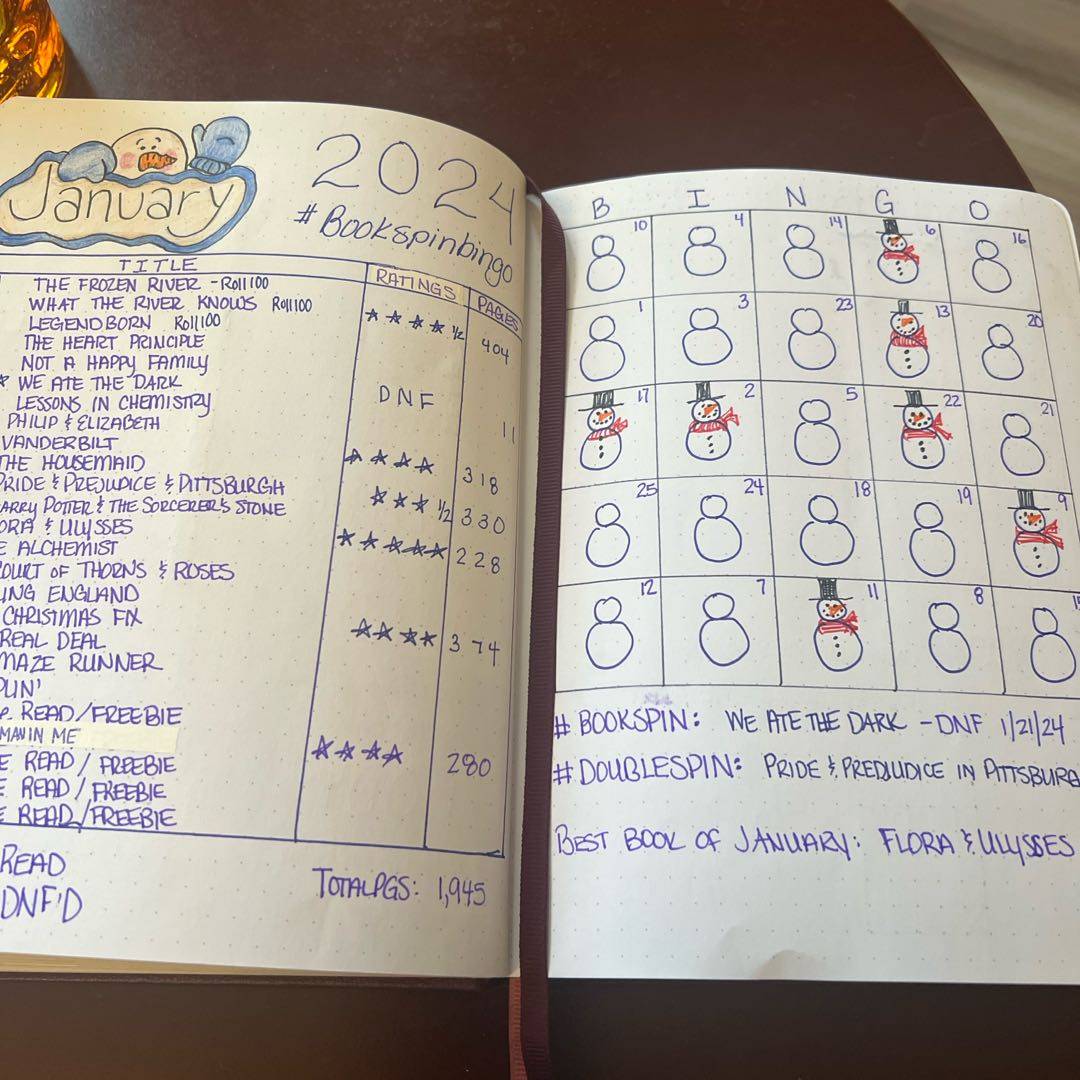 January
2024
#Bookspinbingo
TITLE RATINGS PAGES
THE FROZEN RIVER - Roll100
WHAT THE RIVER KNOWS Roll100
LEGENDBORN Roll100 ★★★★ 1/2 404
THE HEART PRINCIPLE
NOT A HAPPY FAMILY
★ WE ATE THE DARK DNF 11
LESSONS IN CHEMISTRY
PHILIP & ELIZABETH
VANDERBILT
THE HOUSEMAID ★★★★ 318
PRIDE & PREJUDICE & PITTSBURGH ★★★ 1/2 330
ARRY POTTER & THE SORCERER'S STONE
ORA & ULYSSES ★★★★★ 228
E ALCHEMIST
OURT OF THORNS & ROSES
ING ENGLAND
CHRISTMAS FIX
REAL DEAL ★★★★ 374
MAZE RUNNER
PUN'
READ/FREEBIE
MAN IN ME ★★★★ 280
E READ / FREEBIE
E READ / FREEBIE
E READ/FREEBIE
READ
DNF'D
TOTAL PGS: 1,945
B I N G O
10 4 14 6 16
1 3 23 13 20
17 2 5 22 21
25 24 18 19 9
12 7 11 8
# BOOKSPIN: WE ATE THE DARK - DNF 1/21/24
# DOUBLESPIN: PRIDE & PREDJUDICE IN PITTSBURG
BEST BOOK OF JANUARY: FLORA & ULYSSES